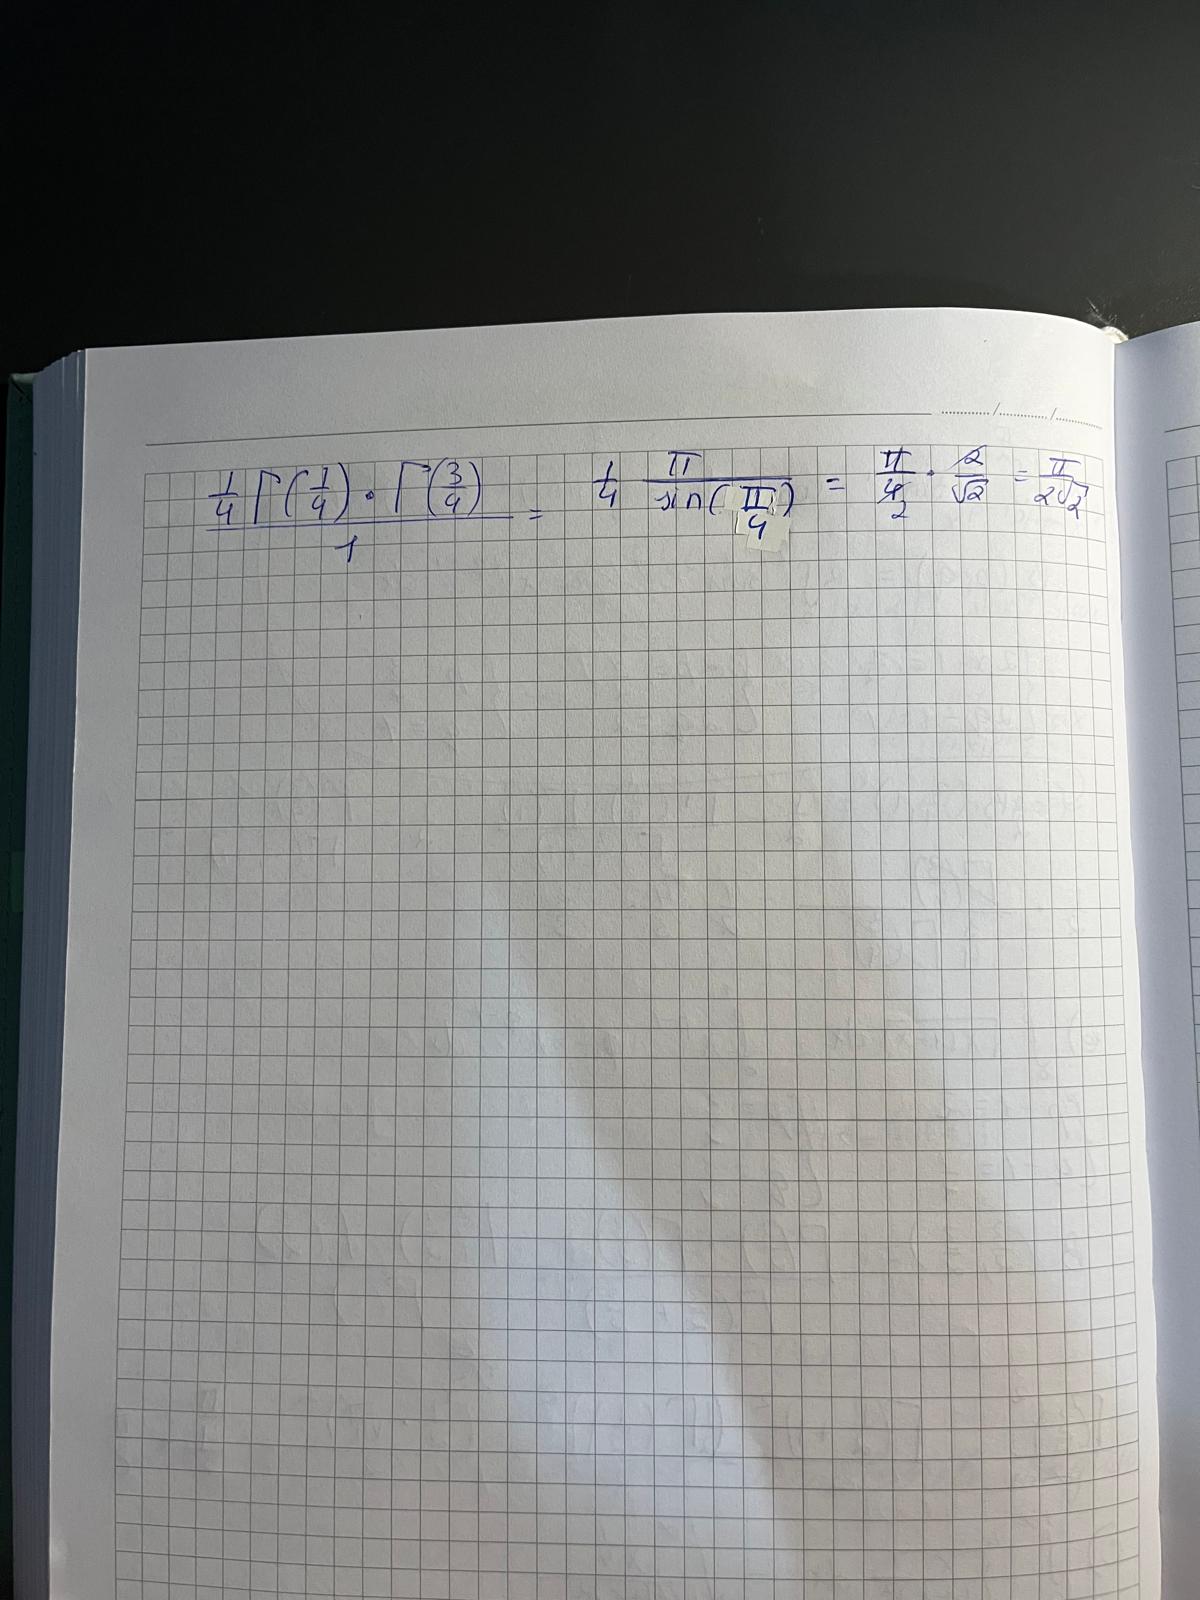 1/4 Γ(1/4) · Γ(3/4) / 1 = 1/4 π / sin(π/4) = π/4 2 · 2/√2 = π/2√2